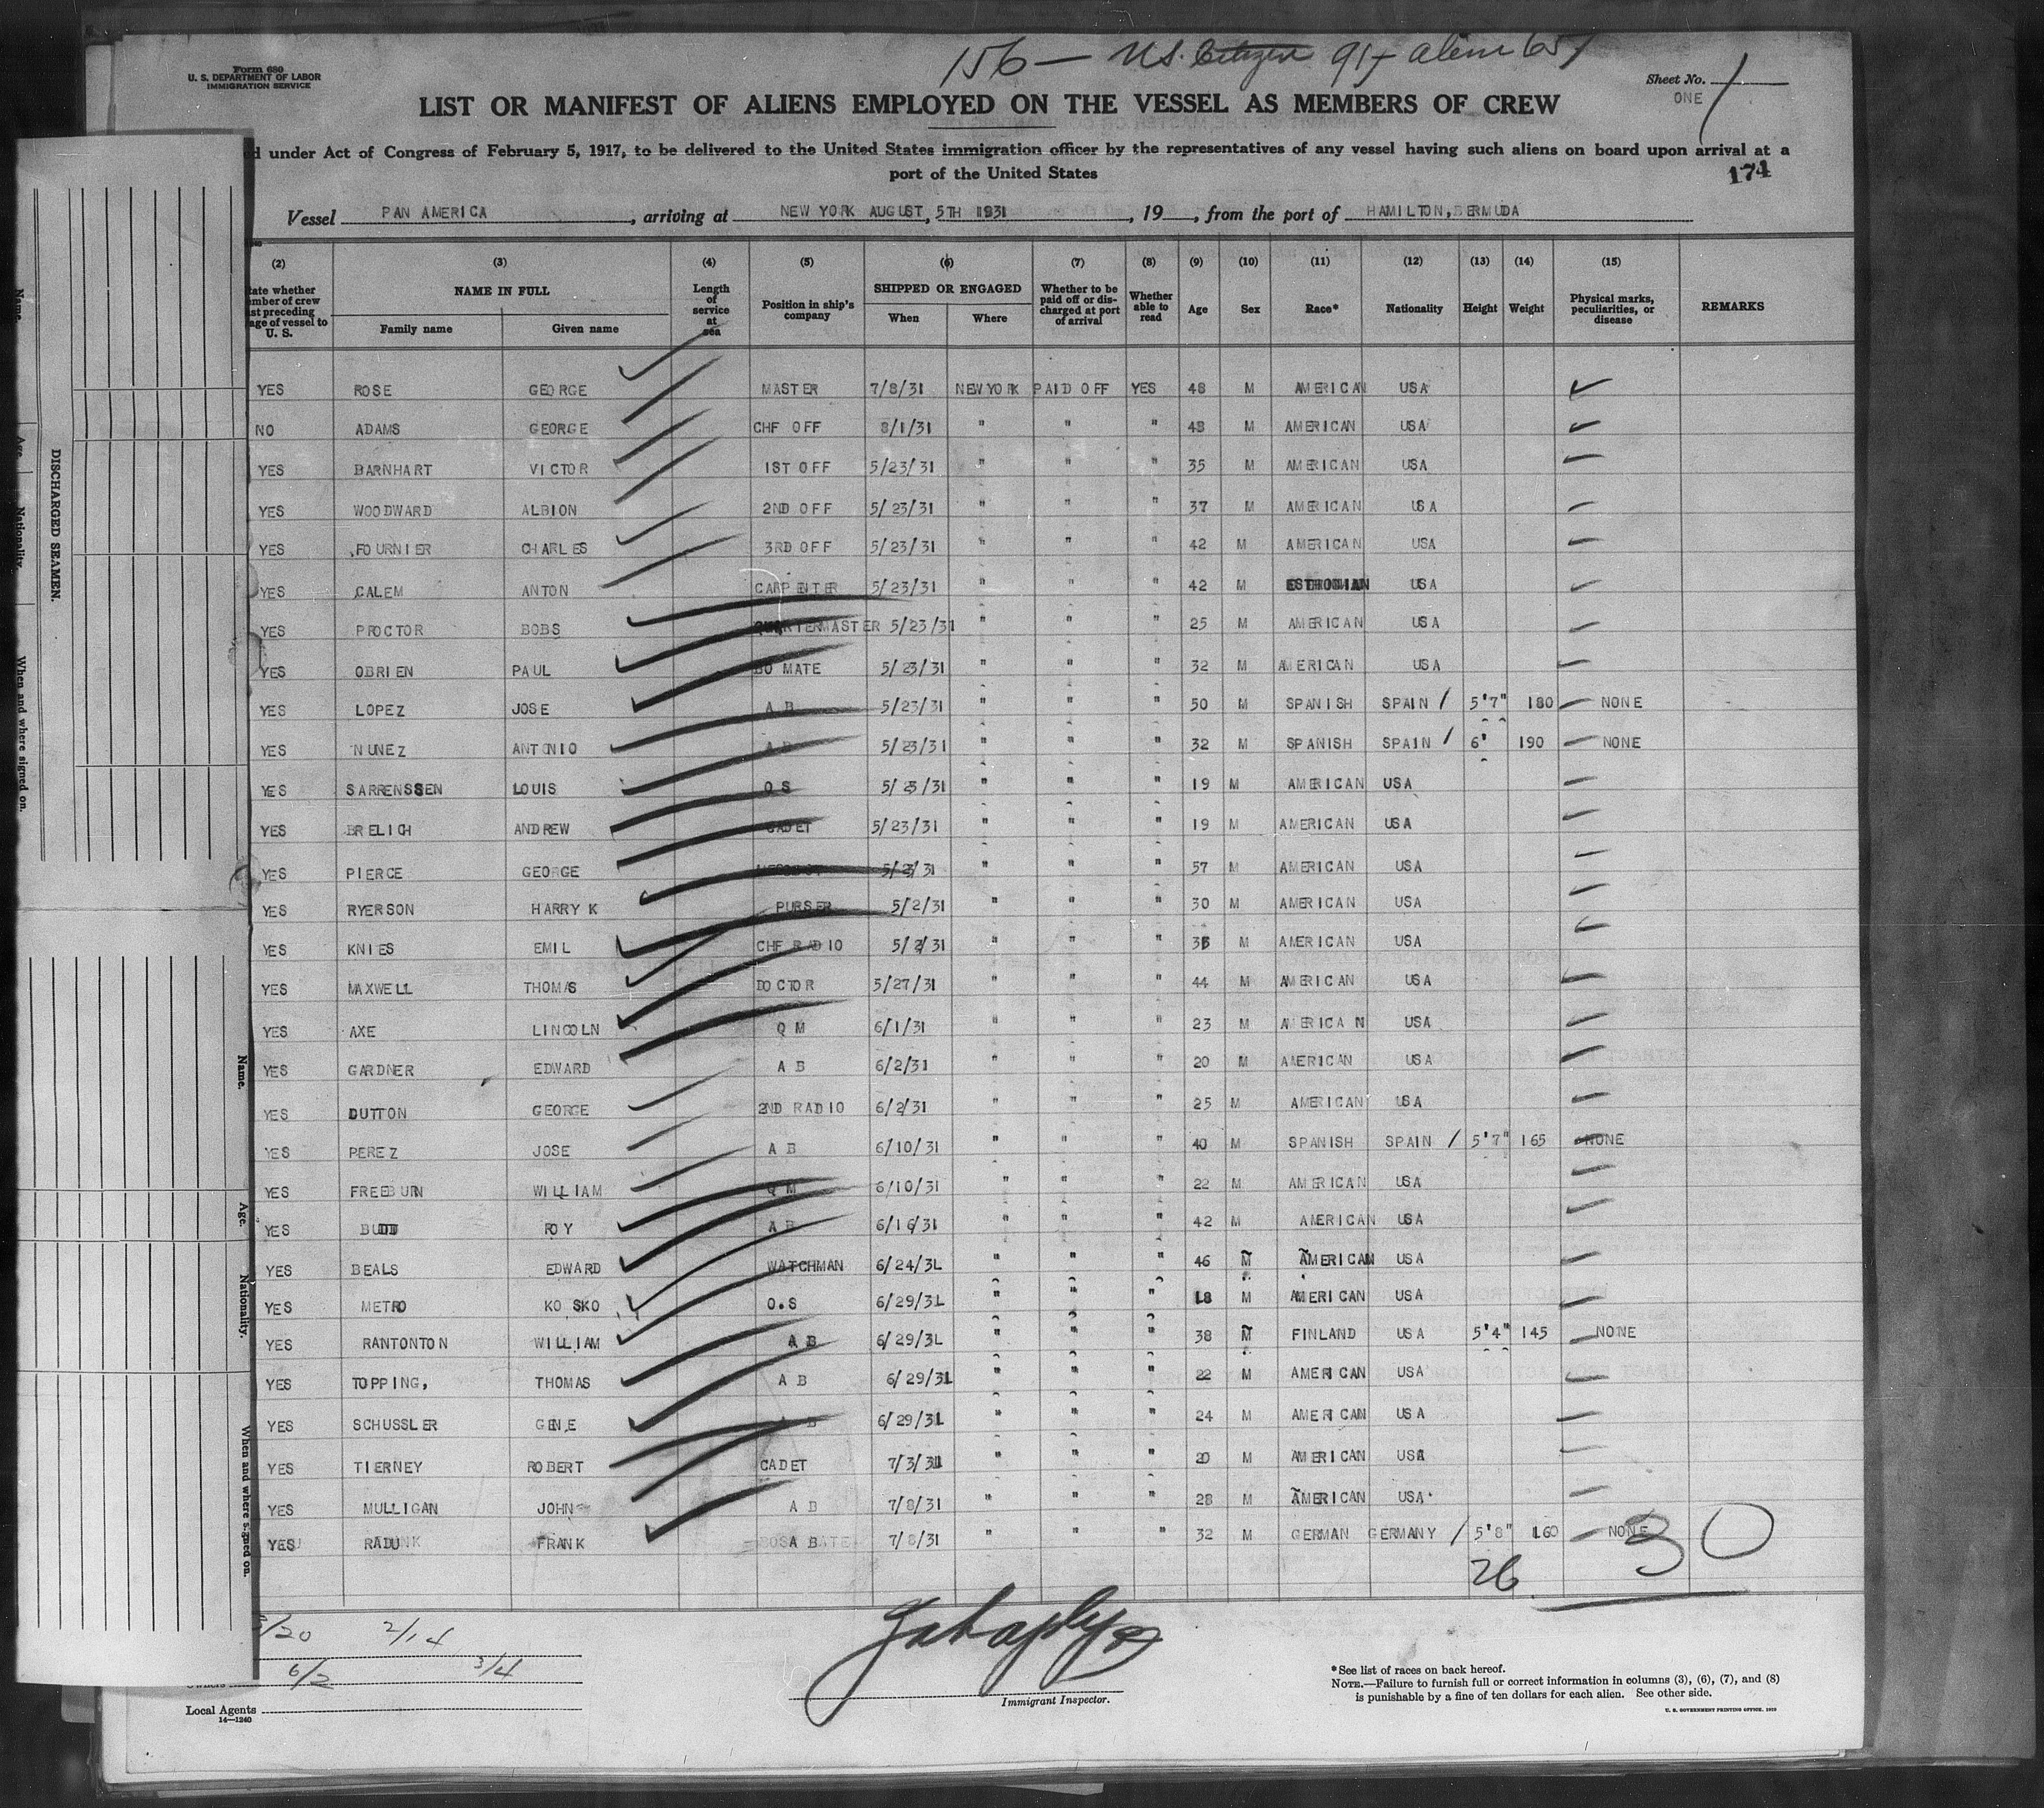 156 — U.S. Citizens 91 + alien 65 /
Form 680
U. S. DEPARTMENT OF LABOR
IMMIGRATION SERVICE
Sheet No. 1
ONE
LIST OR MANIFEST OF ALIENS EMPLOYED ON THE VESSEL AS MEMBERS OF CREW
d under Act of Congress of February 5, 1917, to be delivered to the United States immigration officer by the representatives of any vessel having such aliens on board upon arrival at a
port of the United States
174
Vessel PAN AMERICA, arriving at NEW YORK AUGUST, 5TH 1931, 19, from the port of HAMILTON, BERMUDA
(2) (3) (4) (5) (6) (7) (8) (9) (10) (11) (12) (13) (14) (15)
tate whether
mber of crew
st preceding
age of vessel to
U. S.
NAME IN FULL
Family name Given name
Length
of
service
at
sea
Position in ship's
company
SHIPPED OR ENGAGED
When Where
Whether to be
paid off or dis-
charged at port
of arrival
Whether
able to
read
Age Sex Race* Nationality Height Weight
Physical marks,
peculiarities, or
disease
REMARKS
YES ROSE GEORGE MASTER 7/8/31 NEW YORK PAID OFF YES 48 M AMERICAN USA
NO ADAMS GEORGE CHF OFF 8/1/31 " " " 48 M AMERICAN USA
YES BARNHART VICTOR 1ST OFF 5/23/31 " " " 35 M AMERICAN USA
YES WOODWARD ALBION 2ND OFF 5/23/31 " " " 37 M AMERICAN USA
YES FOURNIER CHARLES 3RD OFF 5/23/31 " " " 42 M AMERICAN USA
YES CALEM ANTON CARPENTER 5/23/31 " " " 42 M ESTHONIAN USA
YES PROCTOR BOBS QUARTERMASTER 5/23/31 " " " 25 M AMERICAN USA
YES OBRIEN PAUL BO MATE 5/23/31 " " " 32 M AMERICAN USA
YES LOPEZ JOSE A B 5/23/31 " " " 50 M SPANISH SPAIN / 5'7" 180 NONE
YES NUNEZ ANTONIO A B 5/23/31 " " " 32 M SPANISH SPAIN / 6' 190 NONE
YES SARRENSSEN LOUIS O S 5/23/31 " " " 19 M AMERICAN USA
YES BRELICH ANDREW CADET 5/23/31 " " " 19 M AMERICAN USA
YES PIERCE GEORGE 5/2/31 " " " 57 M AMERICAN USA
YES RYERSON HARRY K PURSER 5/2/31 " " " 30 M AMERICAN USA
YES KNIES EMIL CHF RADIO 5/2/31 " " " M AMERICAN USA
YES MAXWELL THOMAS DOCTOR 5/27/31 " " " 44 M AMERICAN USA
YES AXE LINCOLN Q M 6/1/31 " " " 23 M AMERICAN USA
YES GARDNER EDWARD A B 6/2/31 " " " 20 M AMERICAN USA
YES DUTTON GEORGE 2ND RADIO 6/2/31 " " " 25 M AMERICAN USA
YES PEREZ JOSE A B 6/10/31 " " " 40 M SPANISH SPAIN / 5'7" 165 NONE
YES FREEBURN WILLIAM Q M 6/10/31 " " " 22 M AMERICAN USA
YES BUDD ROY A B 6/16/31 " " " 42 M AMERICAN USA
YES BEALS EDWARD WATCHMAN 6/24/31 " " " 46 M AMERICAN USA
YES METRO KOSKO O.S 6/29/31 " " " 18 M AMERICAN USA
YES RANTONTON WILLIAM A B 6/29/31 " " " 38 M FINLAND USA 5'4" 145 NONE
YES TOPPING, THOMAS A B 6/29/31 " " " 22 M AMERICAN USA
YES SCHUSSLER GENE A B 6/29/31 " " " 24 M AMERICAN USA
YES TIERNEY ROBERT CADET 7/3/31 " " " 20 M AMERICAN USA
YES MULLIGAN JOHN A B 7/8/31 " " " 28 M AMERICAN USA
YES RADUNK FRANK A B 7/8/31 " " " 32 M GERMAN GERMANY / 5'8" 160 NONE
30
26
3/20 2/14
6/2 3/4
Owners
Local Agents
14—1240
Immigrant Inspector.
*See list of races on back hereof.
NOTE.—Failure to furnish full or correct information in columns (3), (6), (7), and (8)
is punishable by a fine of ten dollars for each alien. See other side.
U. S. GOVERNMENT PRINTING OFFICE, 1929
DISCHARGED SEAMEN.
Name.
Age.
Nationality.
When and where signed on.
Name.
Age.
Nationality.
When and where signed on.